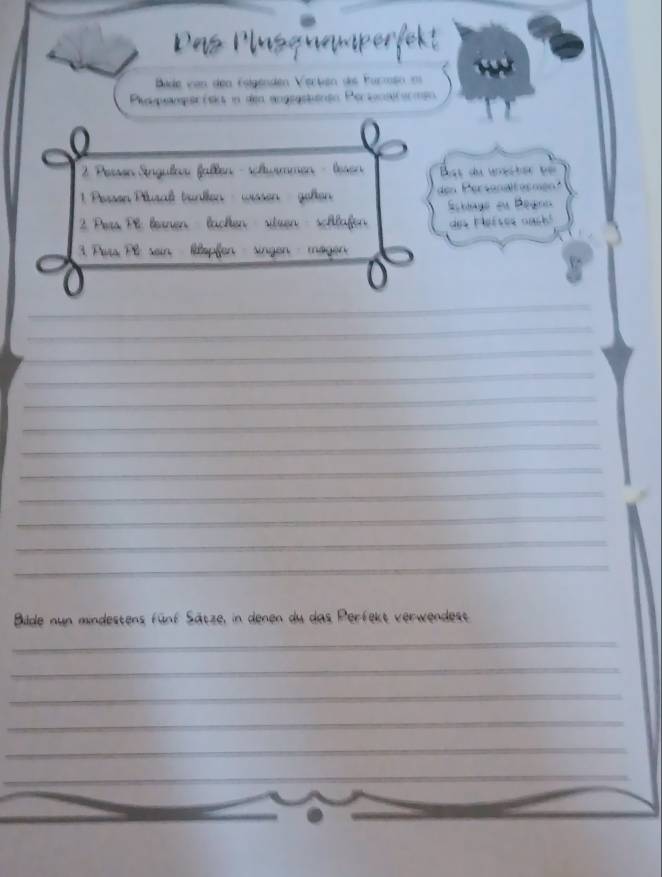 Das Plusquamperfekt
Bilde von den folgenden Verben die Formen im
Plusquamperfekt in den angegebenen Personalformen.
2. Person Singular: fallen - schwimmen - lesen
1. Person Plural: trinken - wissen - gehen
2. Pers. Pl.: lernen - lachen - sitzen - schlafen
3. Pers. Pl.: sein - klopfen - singen - mögen
Bist du unsicher bei
den Personalformen?
Schlage zu Beginn
des Heftes nach!
Bilde nun mindestens fünf Sätze, in denen du das Perfekt verwendest.